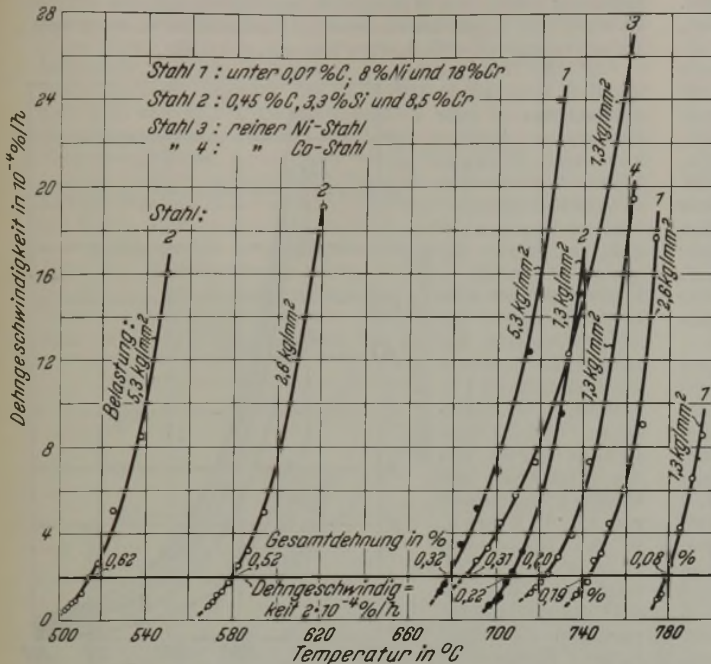 28
24
20
16
12
8
4
0
Dehngeschwindigkeit in 10⁻⁴%/h
Stahl 1 : unter 0,07 %C, 8%Ni und 18%Cr
Stahl 2 : 0,45 %C, 3,3 %Si und 8,5 %Cr
Stahl 3 : reiner Ni-Stahl
" 4 : " Co-Stahl
Stahl:
2
2
1
2
3
4
1
1
Belastung:
5,3 kg/mm²
2,6 kg/mm²
5,3 kg/mm²
1,3 kg/mm²
1,3 kg/mm²
1,3 kg/mm²
2,6 kg/mm²
1,3 kg/mm²
Gesamtdehnung in %
0,62
0,52
0,32
0,31
0,20
0,08 %
0,22
0,19 %
Dehngeschwindig=
keit 2·10⁻⁴%/h
500
540
580
620
660
700
740
780
Temperatur in °C